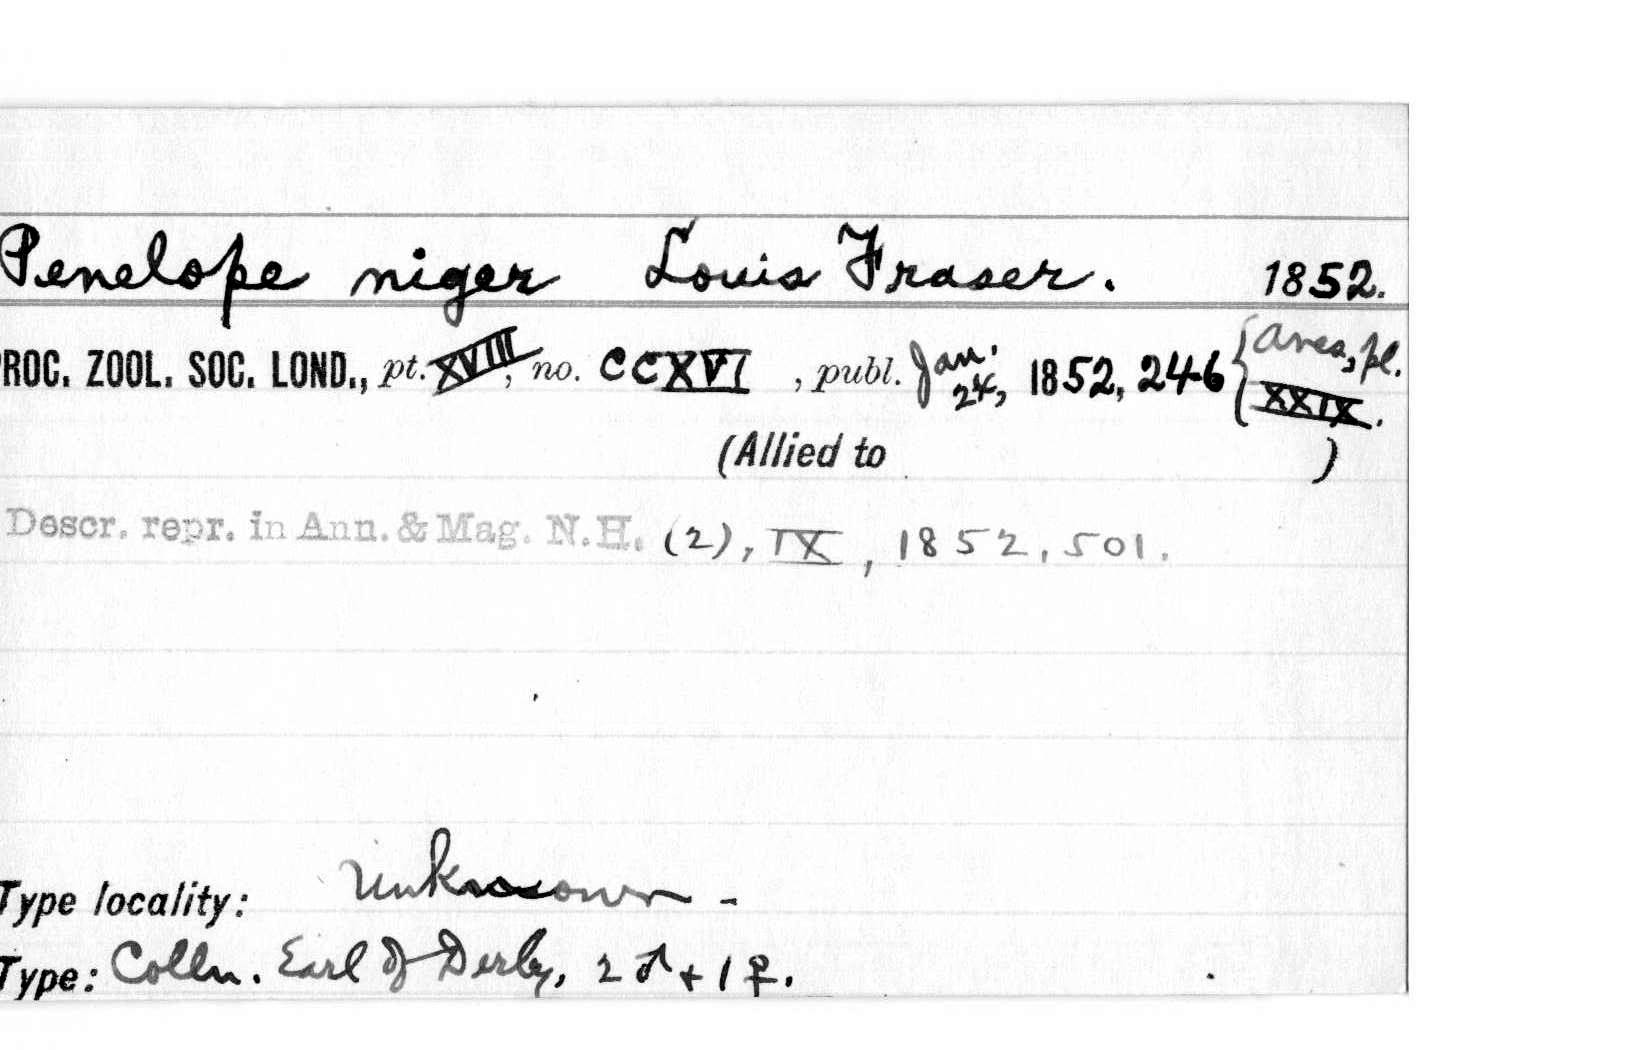 Penelope niger Louis Fraser. 1852.
ROC. ZOOL. SOC. LOND., pt. XVIII, no. CCXVI, publ. Jan. 24, 1852, 246 { Aves, pl. XXIX.
(Allied to )
Descr. repr. in Ann. & Mag. N.H. (2), IX, 1852, 501.
Type locality: Unknown -
Type: Colln. Earl of Derby, 2 ♂ + 1 ♀.